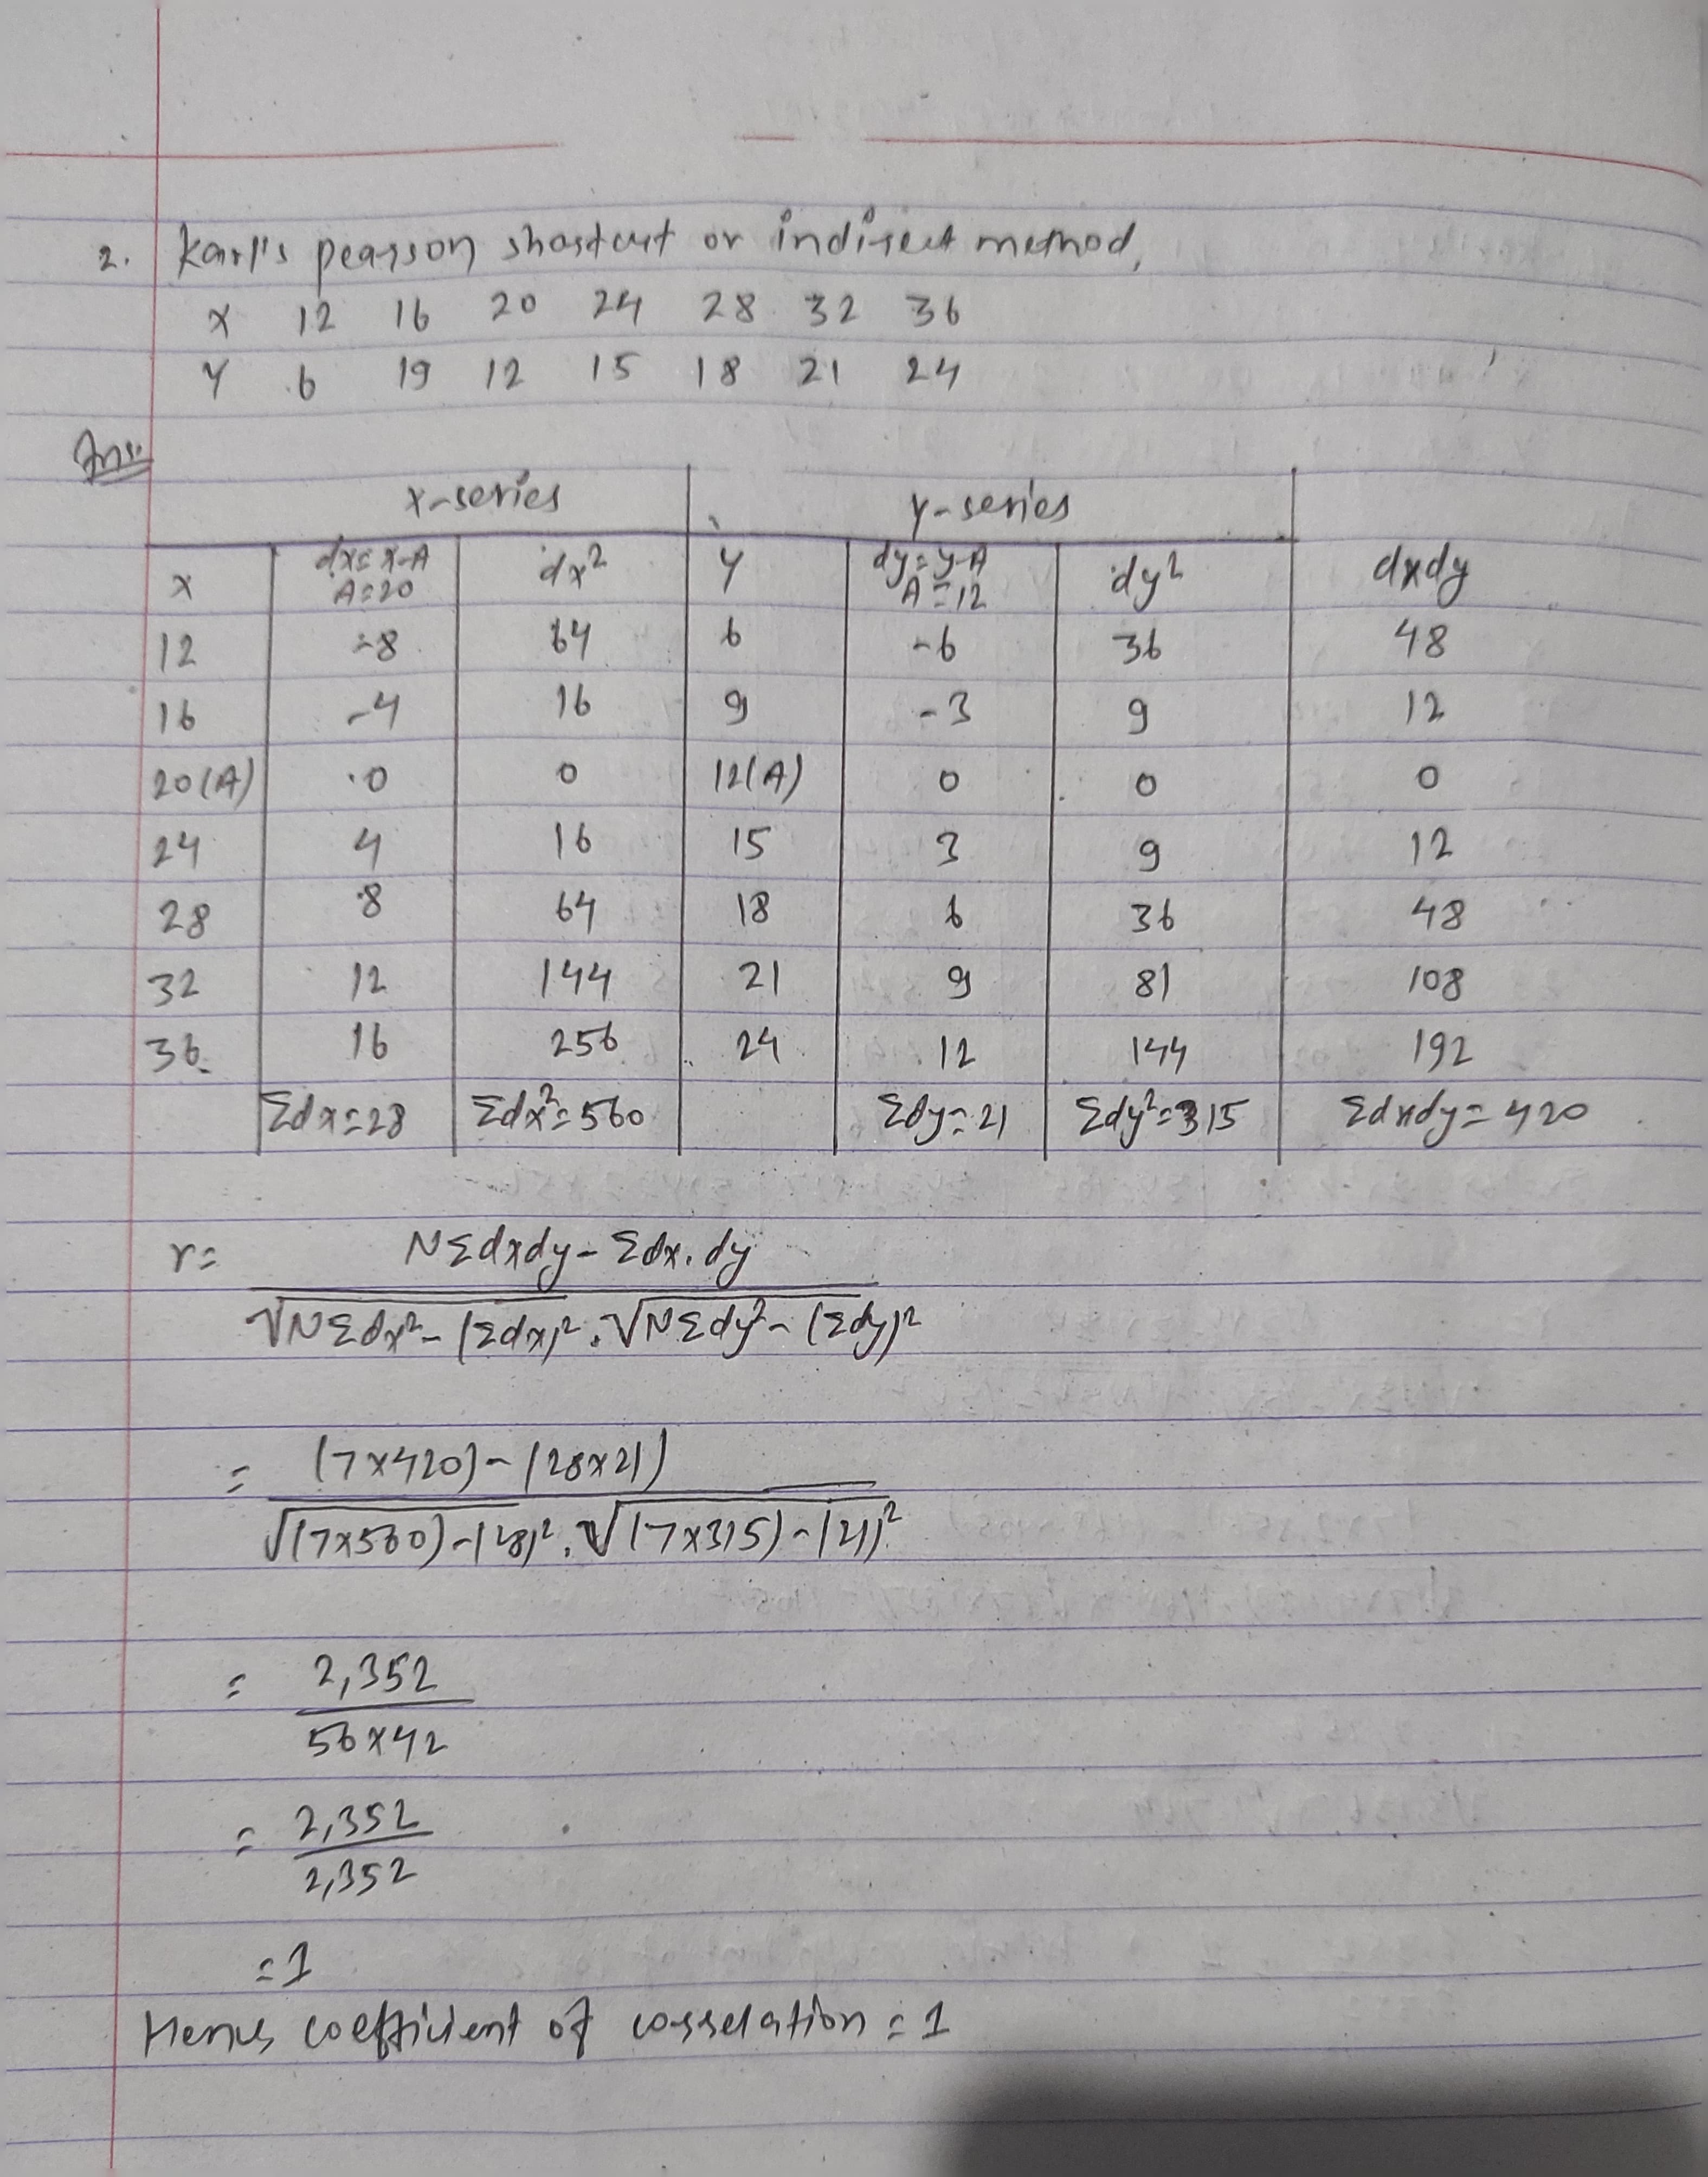 2. Karl's pearson shortcut or indirect method,
X 12 16 20 24 28 32 36
Y 6 19 12 15 18 21 24
Ans:
X-series Y-series
X dx=X-A A=20 dx² Y dy=y-A A=12 dy² dxdy
12 -8 64 6 -6 36 48
16 -4 16 9 -3 9 12
20(A) 0 0 12(A) 0 0 0
24 4 16 15 3 9 12
28 8 64 18 6 36 48
32 12 144 21 9 81 108
36 16 256 24 12 144 192
Σdx=28 Σdx²=560 Σdy=21 Σdy²=315 Σdxdy=420
r= NΣdxdy-Σdx.dy
√NΣdx²-(Σdx)².√NΣdy²-(Σdy)²
= (7x420)-(28x21)
√(7x560)-(28)².√(7x315)-(21)²
= 2,352
56x42
= 2,352
2,352
=1
coefficient of correlation=1